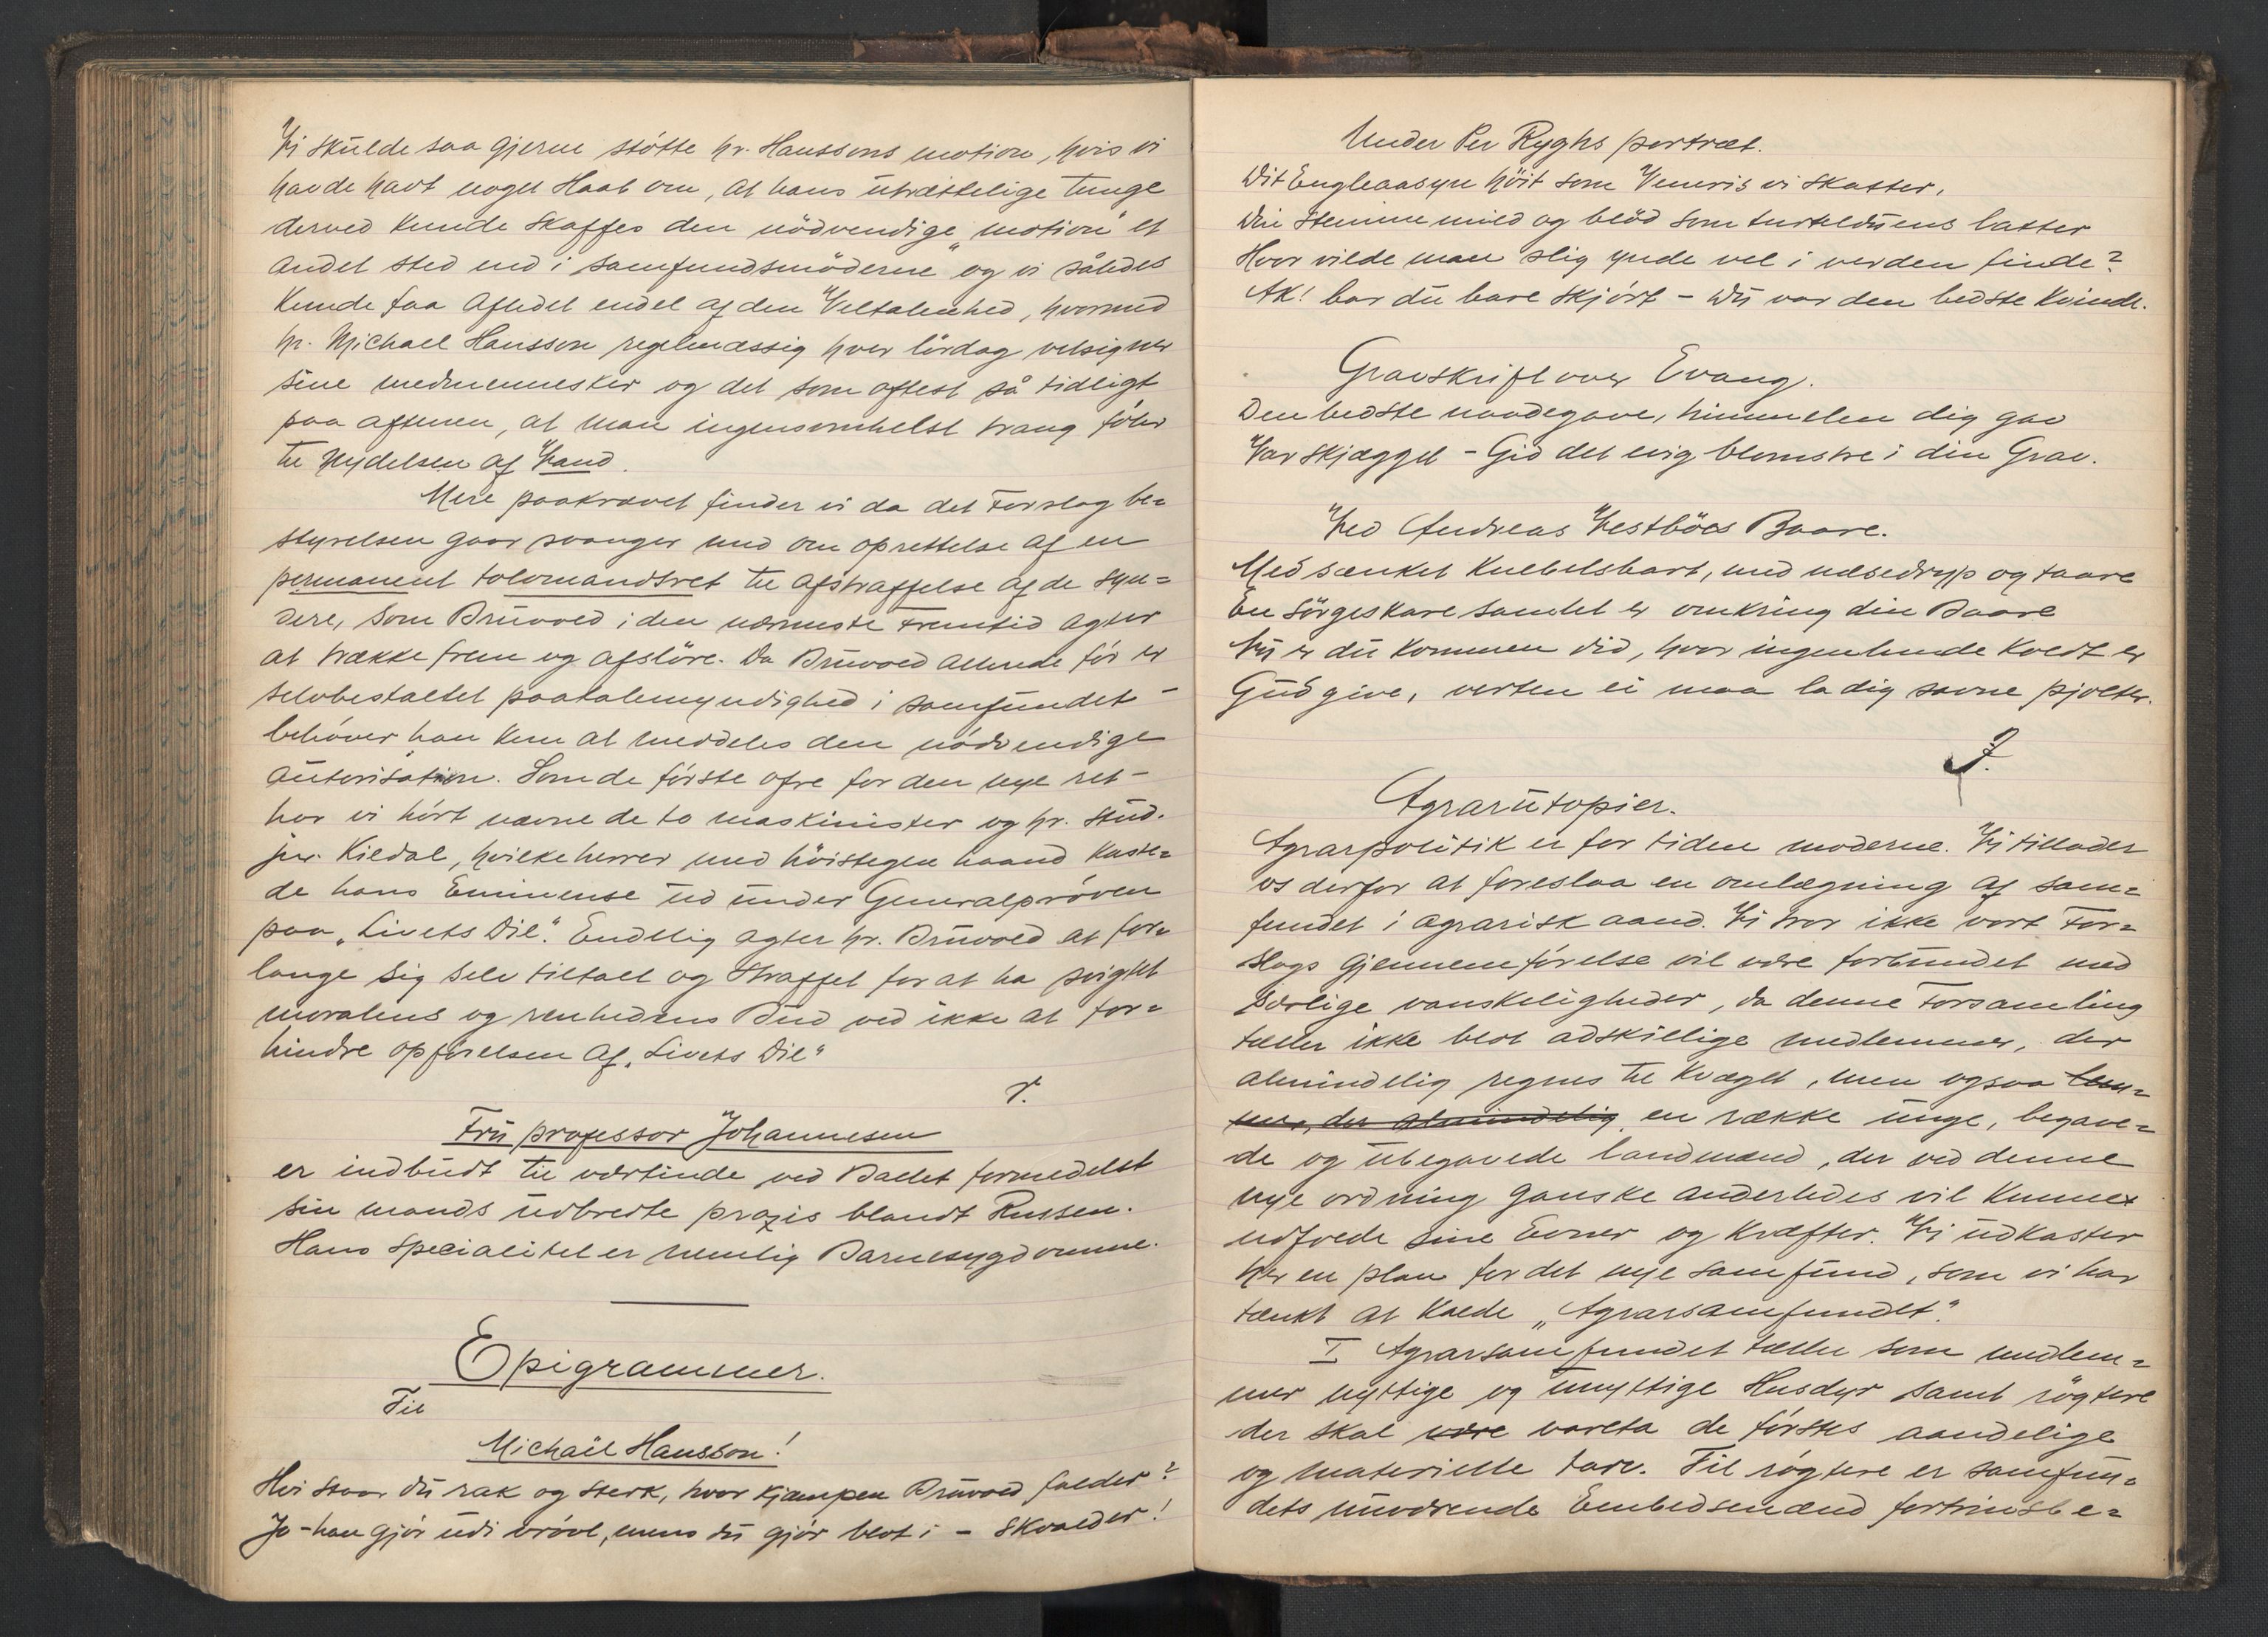 Vi skulde saa gjerne støtte hr. Hanssons motion, hvis vi
havde havt noget Haab om, at hans utrættelige tunge
derved kunde skaffes den nödvendige „motion" et
andet sted end i samfundsmöderne og vi således
kunde faa afledet endel af den Veltalenhed, hvormed
hr. Michael Hansson regelmæssig hver lördag velsigner
sine medmennesker og det som oftest så tidligt
paa aftenen, at man ingensomhelst trang föler
til Nydelsen af Vand.
Mere paakrævet finder vi da det Forslag be=
styrelsen gaar svanger med om oprettelse af en
permanent tolvmandsret til afstraffelse af de syn=
dere, som Bruvold i den nærmeste Fremtid agter
at trække frem og afslöre. Da Bruvold allerede för er
selvbestaltet paatalemyndighed i samfundet –
behöver han kun at meddeles den nödvendige
autorisation. Som de förste ofre for den nye ret –
har vi hört nævne de to maskinister og hr. stud.
jur. Kildal, hvilke herrer med höistegen haand kaste=
de hans Eminense ud under Generalpröven
paa „Livets Dil". Endelig agter hr. Bruvold at for=
lange sig selv tiltalt og straffet for at ha svigtet
moralens og renhedens Bud ved ikke at for=
hindre opförelsen af „Livets Dil"
r.
Fru professor Johannesen
er indbudt til værtinde ved Ballet formedelst
sin mands udbredte praxis blandt Russen.
Hans specialitet er nemlig Barnesygdomme.
Epigrammer.
Til
Michaël Hansson!
Hvi staar du rak og sterk, hvor kjæmpen Bruvold falder?
Jo – han gjör udi vrövl, mens du gjör blot i – skvalder!
Under Per Ryghs portræt.
Dit Engleaasyn höit som Veneris vi skatter,
Din stemme mild og blöd som turtelduens latter
Hvor vilde man slig ynde vel i verden finde?
Ak! bar du bare skjört – Du var den bedste Kvinde.
Gravskrift over Evang.
Den bedste naadegave, himmelen dig gav
Var skjægget – Gid det evig blomstre i din Grav.
Ved Andreas Vestböes Baare.
Med sænket knebelsbart, med næsedryp og taare
En sörgeskare samlet er omkring din Baare
Nu er du kommen did, hvor ingenlunde koldt er
Gud give, verten ei maa la dig savne pjolter.
J.
Agrarutopier.
Agrarpolitik er for tiden moderne. Vi tillader
os derfor at foreslaa en omlægning af sam=
fundet i agrarisk aand. Vi tror ikke vort For=
slags gjennemförelse vil være forbundet med
særlige vanskeligheder, da denne Forsamling
tæller ikke blot adskillige medlemmer, der
almindelig regnes til Kvæget, men ogsaa
der almindelig en række unge, begave=
de og ubegavede landmænd, der ved denne
nye ordning ganske anderledes vil kunne
udfolde sine Evner og Kræfter. Vi udkaster
her en plan for det nye samfund, som vi har
tænkt at kalde „Agrarsamfundet".
I Agrarsamfundet tæller som medlem=
mer nyttige og unyttige Husdyr samt rögtere
der skal være vareta de förstes aandelige
og materielle tarv. Til rögtere er samfun=
dets nuværende Embedsmænd fortrinsbe=